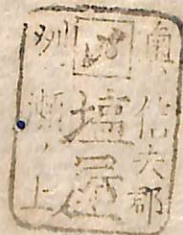 奥信夫郡
塩屋
州瀬ノ上